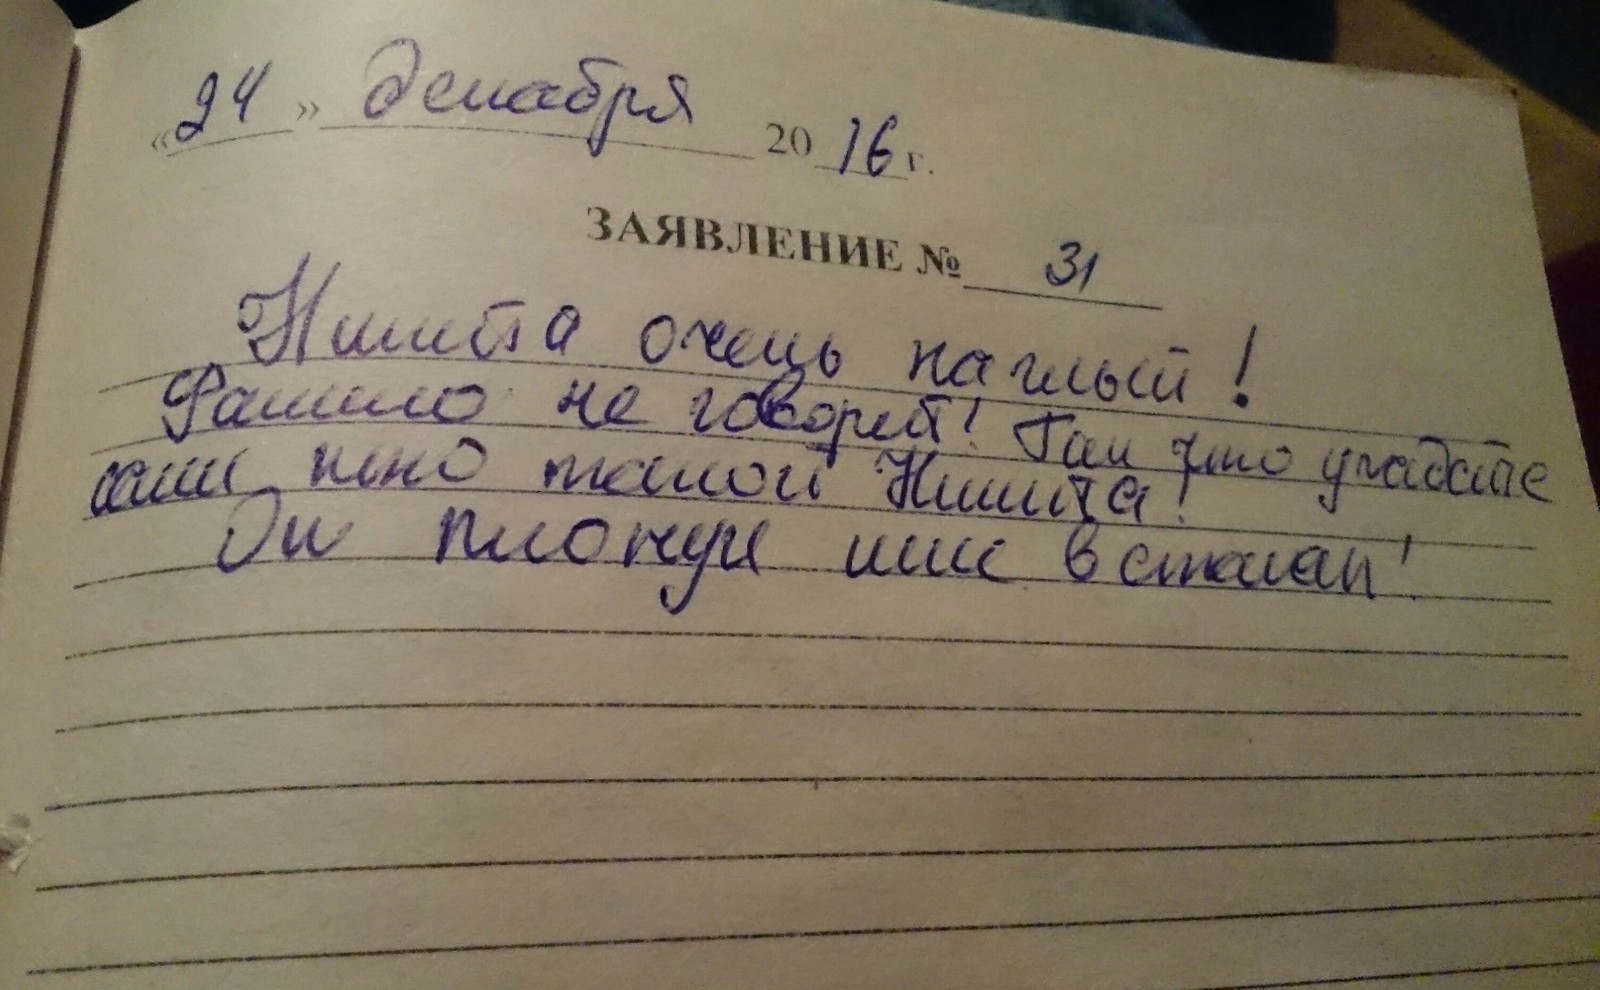 «24» декабря 2016 г.
ЗАЯВЛЕНИЕ № 31
Никита очень наглый!
Фамилю не говорит! Так что угадайте
сами кто такой Никита!
Он плюнул мне в стакан!